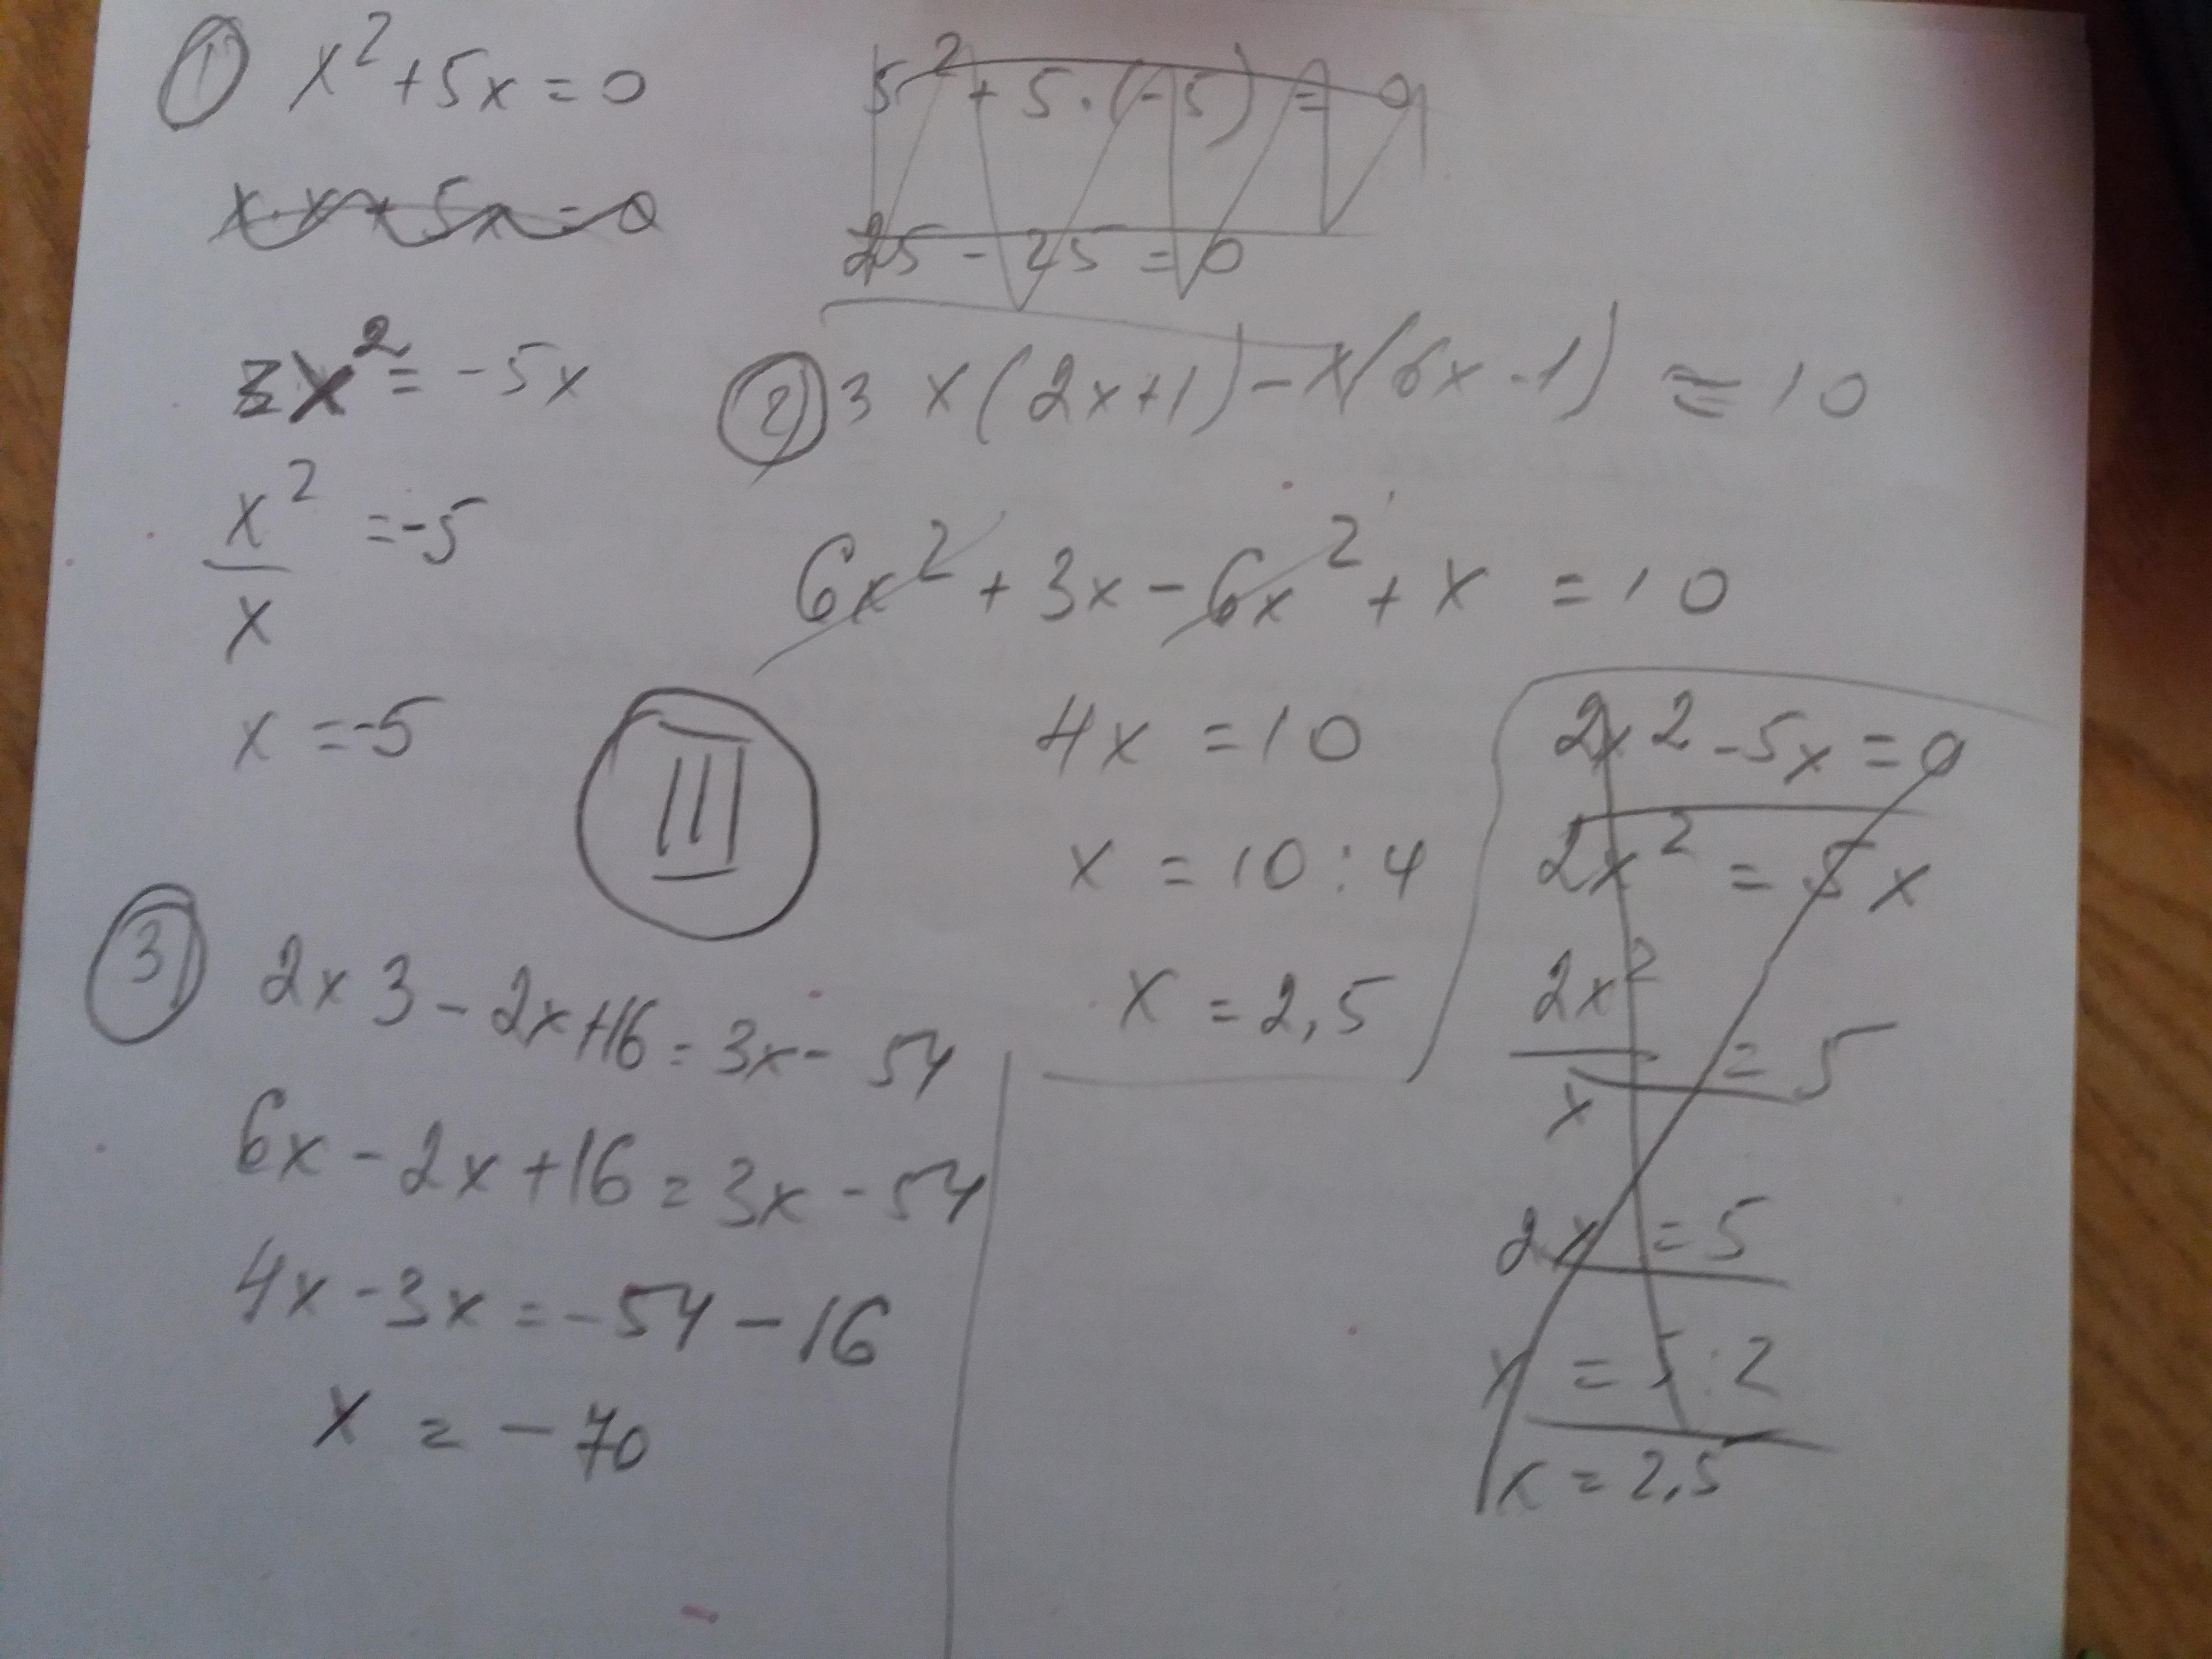 ① x² + 5x = 0
x · x + 5x = 0
x² = -5x
x² / x = -5
x = -5
5² + 5 · (-5) = 0
25 - 25 = 0
② 3x(2x+1) - x(6x-1) = 10
6x² + 3x - 6x² + x = 10
4x = 10
x = 10 : 4
x = 2,5
III
2x2 - 5x = 0
2x² = 5x
2x² / x = 5
2x = 5
x = 5 : 2
x = 2,5
③ 2x 3 - 2x + 16 = 3x - 54
6x - 2x + 16 = 3x - 54
4x - 3x = -54 - 16
x = -70